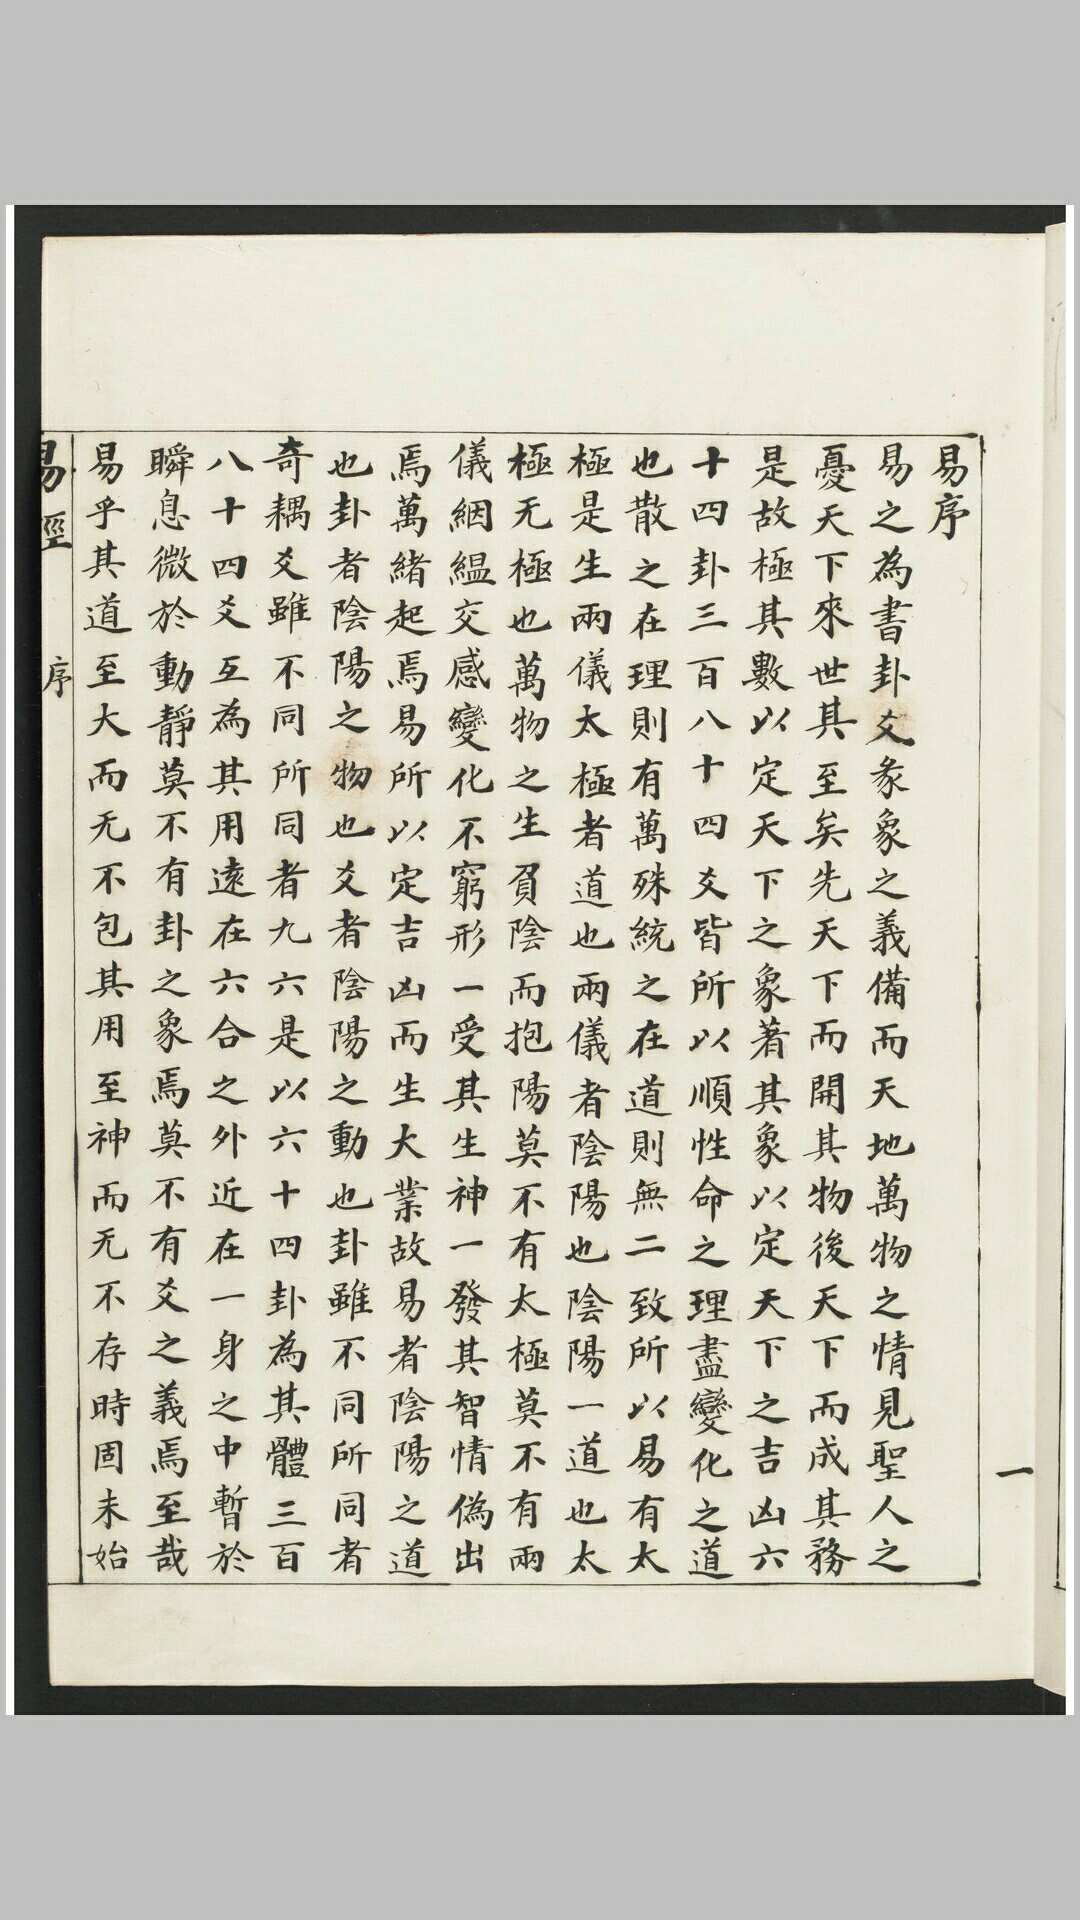 易序
易之為書卦爻彖象之義備而天地萬物之情見聖人之
憂天下來世其至矣先天下而開其物後天下而成其務
是故極其數以定天下之象著其象以定天下之吉凶六
十四卦三百八十四爻皆所以順性命之理盡變化之道
也散之在理則有萬殊統之在道則無二致所以易有太
極是生兩儀太極者道也兩儀者陰陽也陰陽一道也太
極无極也萬物之生負陰而抱陽莫不有太極莫不有兩
儀絪縕交感變化不窮形一受其生神一發其智情偽出
焉萬緒起焉易所以定吉凶而生大業故易者陰陽之道
也卦者陰陽之物也爻者陰陽之動也卦雖不同所同者
奇耦爻雖不同所同者九六是以六十四卦為其體三百
八十四爻互為其用遠在六合之外近在一身之中暫於
瞬息微於動靜莫不有卦之象焉莫不有爻之義焉至哉
易乎其道至大而无不包其用至神而无不存時固未始
易經 序
一